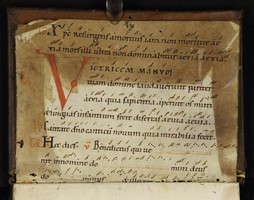 Xpe resurgens a mortuis iam non moritur
mors illi ultra non dominabitur aevia aevia
VICTRICEM MANUM
tuam domine laudaverunt pariter
aevia quia sapientia aperuit os mutum
et linguas infantium fecit disertas aevia aevia
Cantate dno canticu novum quia mirabilia fecit
Hec dies Benedictus qui ve
nit in nomine do mini deus
do minus